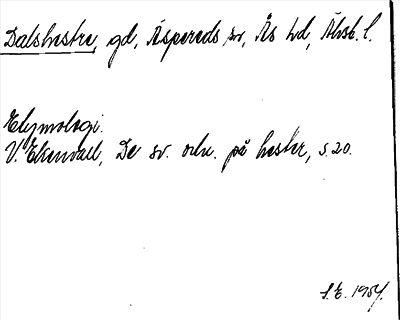 Dalshestra, gd, Äspereds sn, Ås hd, Älvsb. l.
Etymologi.
V. Ekenvall, De sv. ortn. på hester, s. 20.
S.E. 1954.